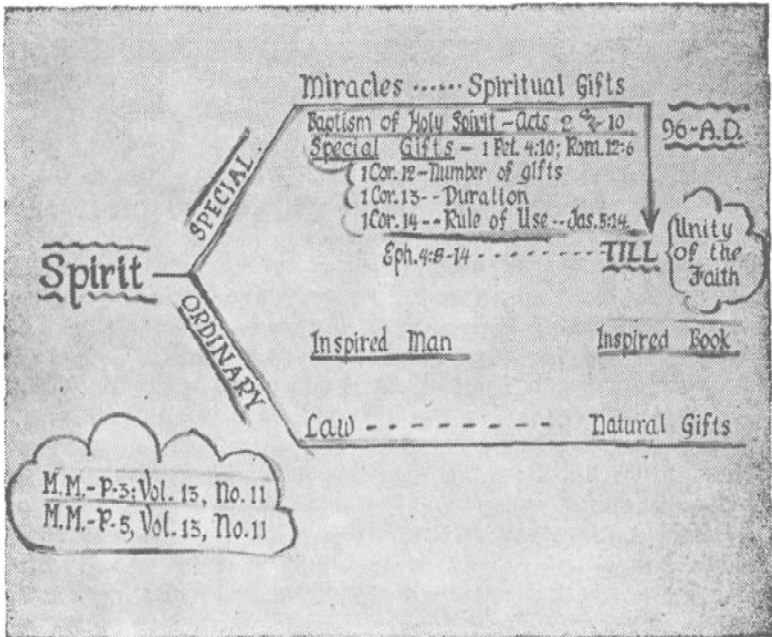 Miracles ...... Spiritual Gifts
Baptism of Holy Spirit - Acts 2 & 10
Special Gifts - 1 Pet. 4:10; Rom. 12:6
1 Cor. 12 - Number of gifts
1 Cor. 13 - - Duration
1 Cor. 14 - - Rule of Use - - Jas. 5:14
Eph. 4:8-14 - - - - - - - - - - - TILL
96-A.D.
Unity
of the
Faith
SPECIAL
Spirit
ORDINARY
Inspired Man Inspired Book
Law - - - - - - - - - Natural Gifts
M.M.-P-3; Vol. 13, No. 11
M.M.-P-5, Vol. 13, No. 11